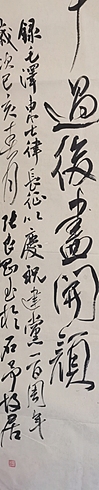 過後盡開顏
錄毛澤東七律長征以慶祝建黨一百周年
歲次己亥春月 張 書於石 居